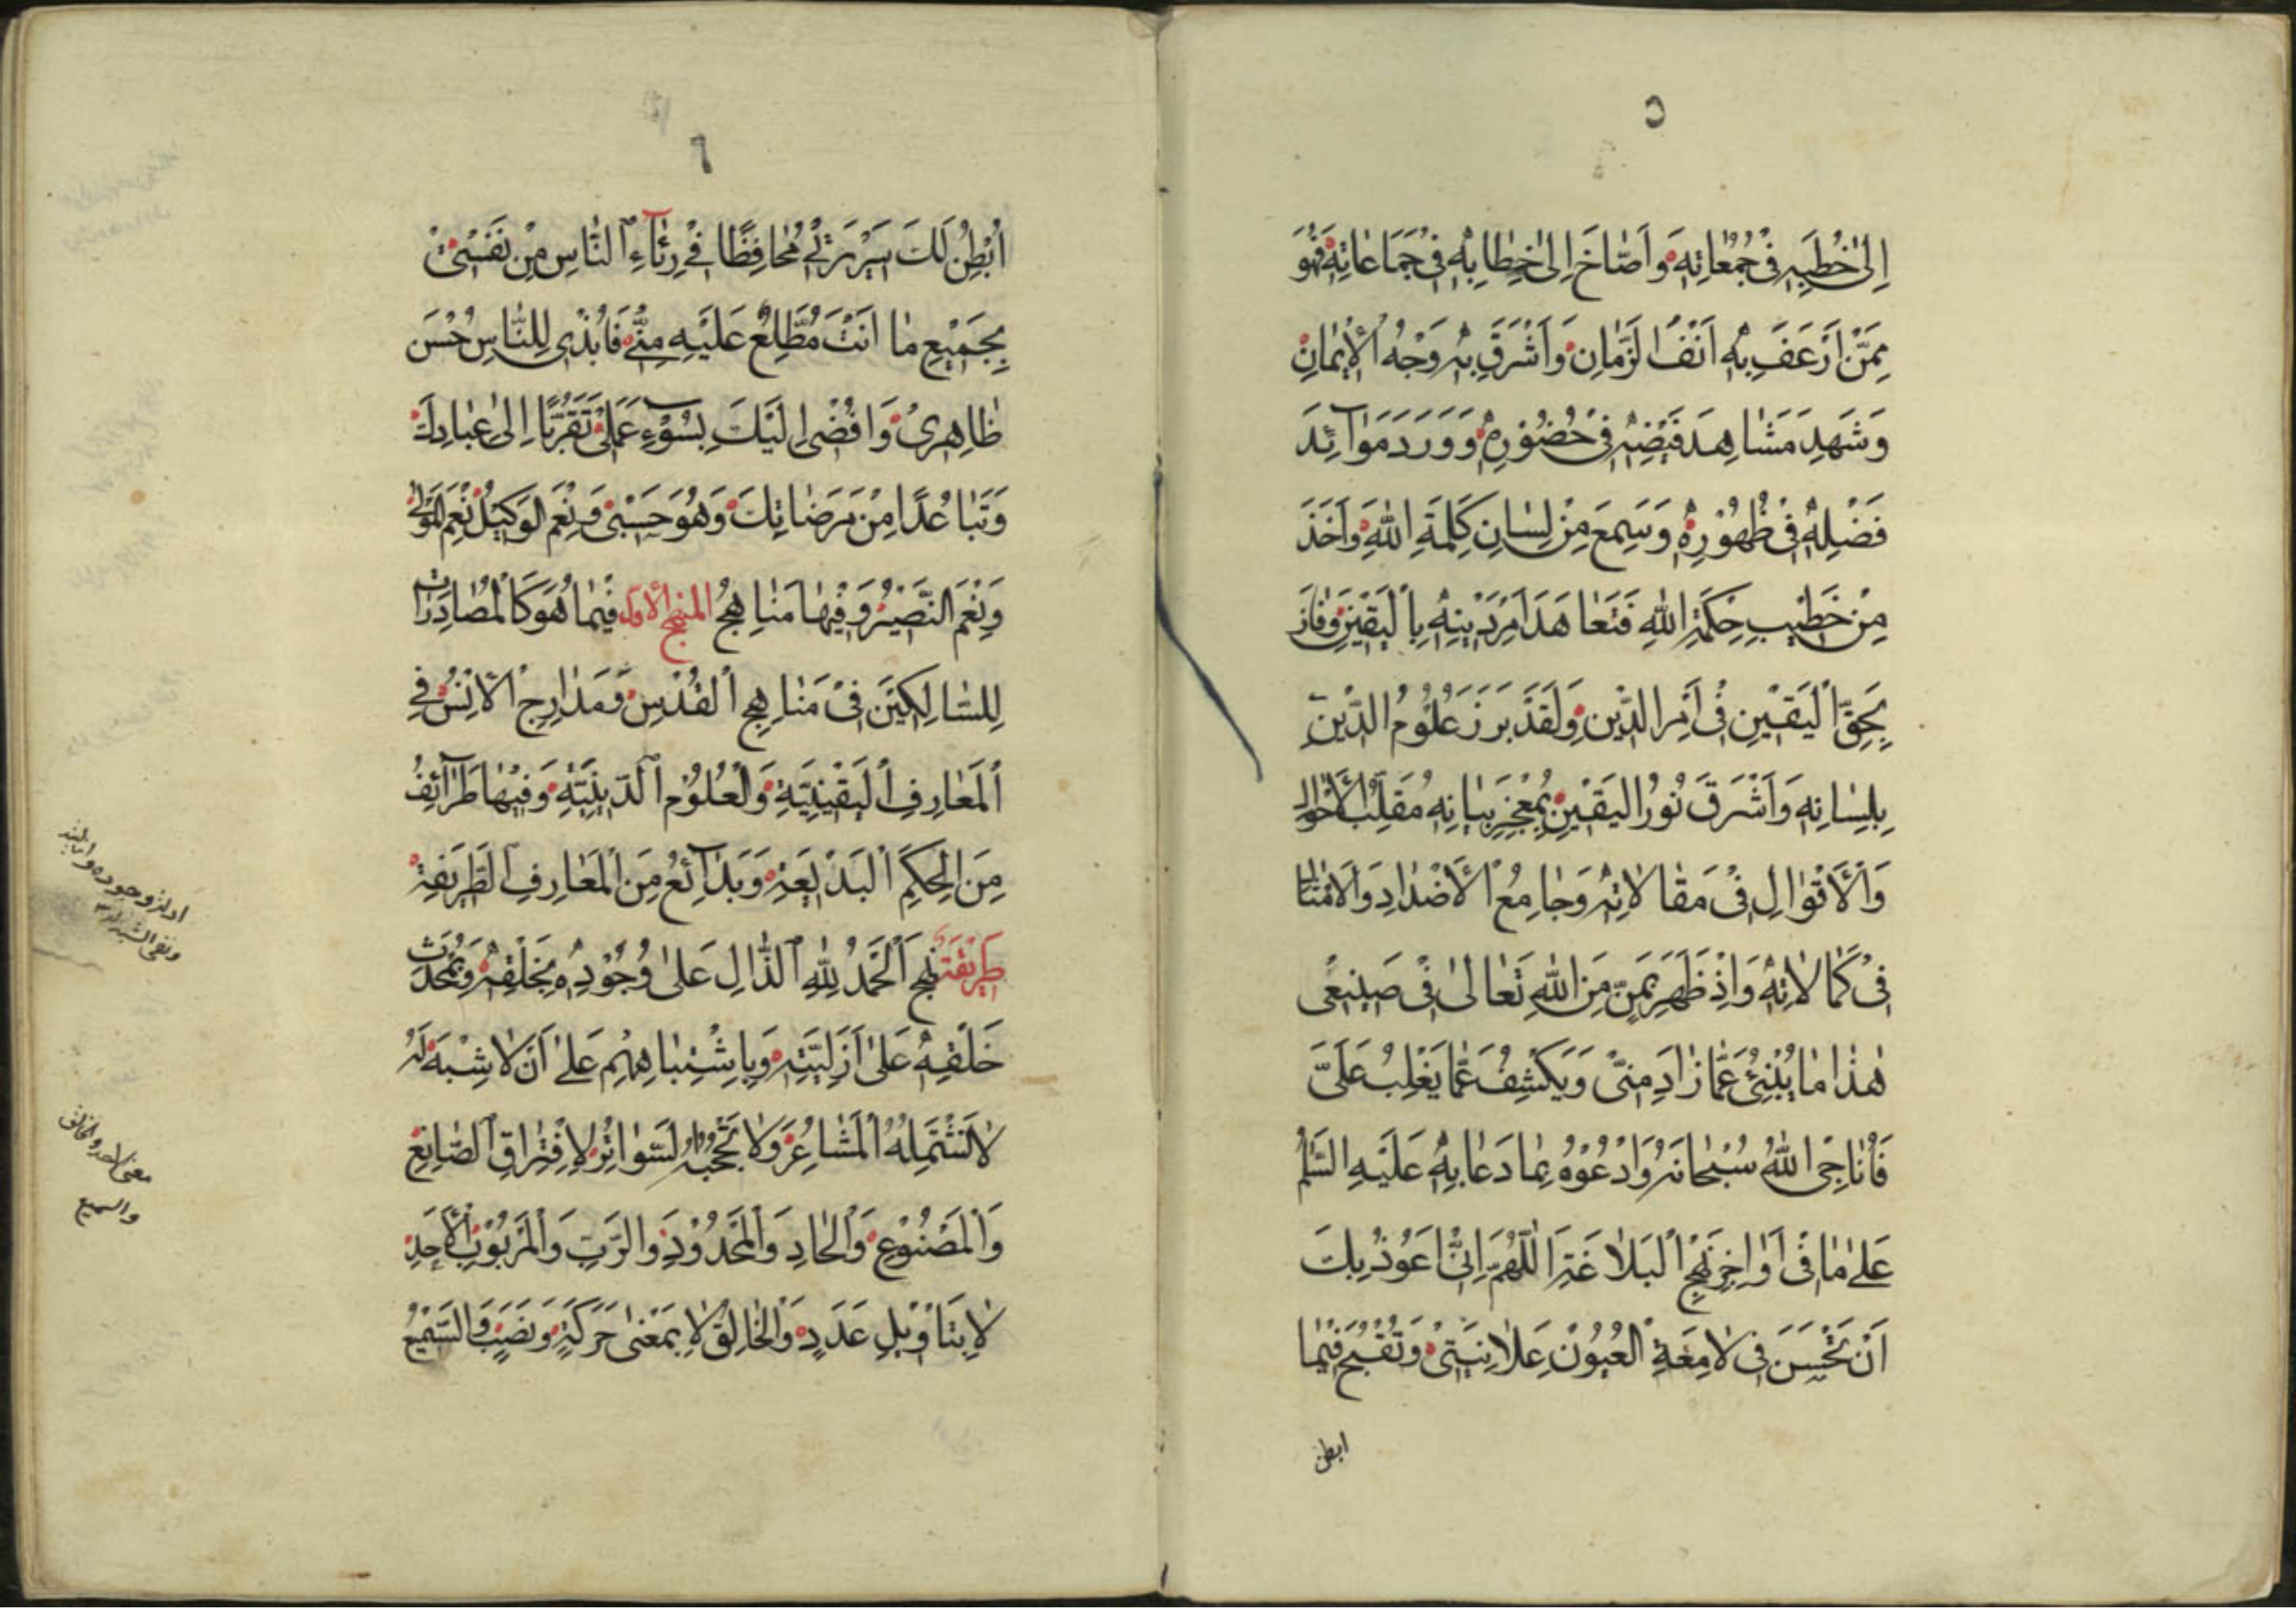 ٥
إِلىٰ خُطَبِهِ فِی جُمُعَاتِهِ وَأَصَاخَ إِلىٰ خِطَابِهِ فِی جَمَاعَاتِهِ فَهُوَ
مِمَّنْ أَرْعَفَ بِهِ أَنْفُ الزَّمَانِ وَأَشْرَقَ بِهِ وَجْهُ الْإِيمَانِ
وَشَهِدَ مَشَاهِدَ فَيْضِهِ فِی حُضُورِهِ وَوَرَدَ مَوَآئِدَ
فَضْلِهِ فِی ظُهُورِهِ وَسَمِعَ مِنْ لِسَانِ كَلِمَةِ اللهِ وَأَخَذَ
مِنْ خَطِيبِ حِكْمَةِ اللهِ فَتَعَاهَدَ أَمْرَ دِينِهِ بِالْيَقِينِ وَفَازَ
بِحَقِّ الْيَقِينِ فِی أَمْرِ الدِّينِ وَلَقَدْ بَرَزَ عُلُومُ الدِّينِ
بِلِسَانِهِ وَأَشْرَقَ نُورُ الْيَقِينِ بِمُعْجِزِ بَيَانِهِ مُقَلِّبُ الْأَحْوَالِ
وَالْأَقْوَالِ فِی مَقَالَاتِهِ وَجَامِعُ الْأَضْدَادِ وَالْأَمْثَالِ
فِی كَمَالَاتِهِ وَإِذْ ظَهَرَ بِمَنٍّ مِنَ اللهِ تَعَالىٰ فِی صَنِيعِی
هٰذَا مَا يُنْبِئُ عَمَّا زَادَ مِنِّی وَيَكْشِفُ عَمَّا يَغْلِبُ عَلَیَّ
فَأُنَاجِی اللهَ سُبْحَانَهُ وَأَدْعُوهُ بِمَا دَعَا بِهِ عَلَيْهِ السَّلٰمُ
عَلىٰ مَا فِی أَوَاخِرِ نَهْجِ الْبَلَاغَةِ اَللّٰهُمَّ إِنِّی أَعُوذُ بِكَ
أَنْ تَحْسُنَ فِی لَامِعَةِ الْعُيُونِ عَلَانِيَتِی وَتَقْبُحَ فِيمَا
ابطن
٦
أُبْطِنُ لَكَ سَرِيرَتِی مُحَافِظًا فِی رِئَآءِ النَّاسِ مِنْ نَفْسِی
بِجَمِيعِ مَا أَنْتَ مُطَّلِعٌ عَلَيْهِ مِنِّی فَأُبْدِی لِلنَّاسِ حُسْنَ
ظَاهِرِی وَأُفْضِی إِلَيْكَ بِسُوءِ عَمَلِی تَقَرُّبًا إِلىٰ عِبَادِكَ
وَتَبَاعُدًا مِنْ مَرْضَاتِكَ وَهُوَ حَسْبِی وَنِعْمَ الْوَكِيلُ نِعْمَ الْمَوْلىٰ
وَنِعْمَ النَّصِيرُ وَفِيهَا مَنَاهِجُ المنهج الأول فِيمَا هُوَ كَالْمُصَادَرَاتِ
لِلسَّالِكِينَ فِی مَنَاهِجِ الْقُدْسِ وَمَدَارِجِ الْأُنْسِ فِی
الْمَعَارِفِ الْيَقِينِيَّةِ وَالْعُلُومِ الدِّينِيَّةِ وَفِيهَا طَرَآئِفُ
مِنَ الْحِكَمِ الْبَدِيعَةِ وَبَدَآئِعُ مِنَ الْمَعَارِفِ الطَّرِيفَةِ
طَرِيفَةٌ نهج اَلْحَمْدُ لِلّٰهِ الدَّالِّ عَلىٰ وُجُودِهِ بِخَلْقِهِ وَبِمُحْدَثِ
خَلْقِهِ عَلىٰ أَزَلِيَّتِهِ وَبِاشْتِبَاهِهِمْ عَلىٰ أَنْ لَا شِبْهَ لَهُ
لَا تَشْتَمِلُهُ الْمَشَاعِرُ وَلَا تَحْجُبُهُ السَّوَاتِرُ لِافْتِرَاقِ الصَّانِعِ
وَالْمَصْنُوعِ وَالْحَادِّ وَالْمَحْدُودِ وَالرَّبِّ وَالْمَرْبُوبِ الْأَحَدِ
لَا بِتَأْوِيلِ عَدَدٍ وَالْخَالِقِ لَا بِمَعْنىٰ حَرَكَةٍ وَنَصَبٍ وَالسَّمِيعِ
وجوده و
ونفی الشبه
معنی الاحد والخالق
والسمیع